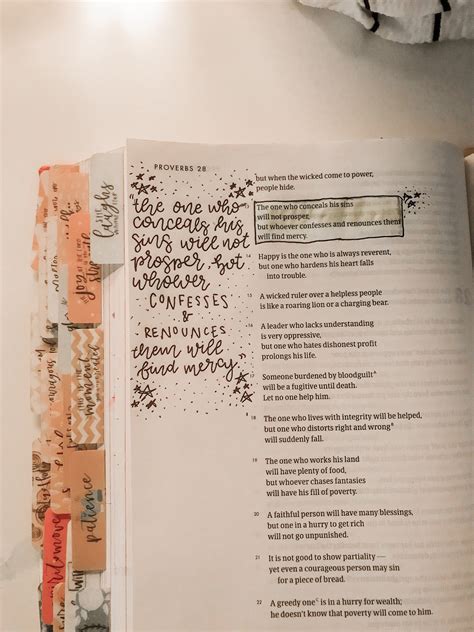 PROVERBS 28
"the one who
conceals his
sins will not
prosper, but
whoever
CONFESSES
&
RENOUNCES
them will
find mercy."
but when the wicked come to power,
people hide.
The one who conceals his sins
will not prosper,
but whoever confesses and renounces them
will find mercy.
14 Happy is the one who is always reverent,
but one who hardens his heart falls
into trouble.
15 A wicked ruler over a helpless people
is like a roaring lion or a charging bear.
16 A leader who lacks understanding
is very oppressive,
but one who hates dishonest profit
prolongs his life.
17 Someone burdened by bloodguilt
will be a fugitive until death.
Let no one help him.
18 The one who lives with integrity will be helped,
but one who distorts right and wrong
will suddenly fall.
19 The one who works his land
will have plenty of food,
but whoever chases fantasies
will have his fill of poverty.
20 A faithful person will have many blessings,
but one in a hurry to get rich
will not go unpunished.
21 It is not good to show partiality —
yet even a courageous person may sin
for a piece of bread.
22 A greedy one is in a hurry for wealth;
he doesn't know that poverty will come to him.
laughs
patience